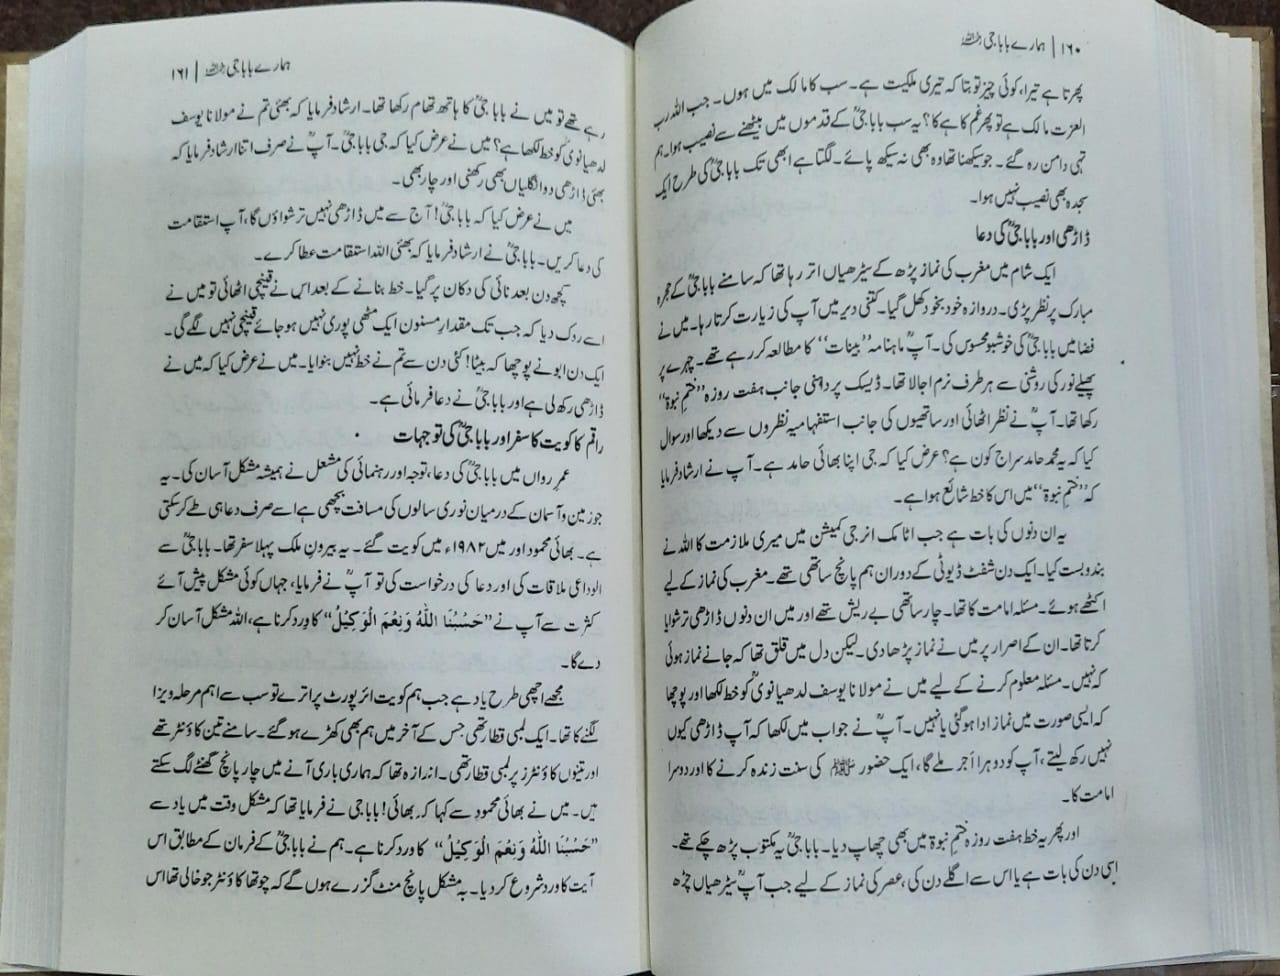 ۱۶۰ | ہمارے بابا جی رحمہ اللہ
پھرتا ہے تیرا، کوئی چیز تو بتا کہ تیری ملکیت ہے۔ سب کا مالک میں ہوں۔ جب اللہ رب
العزت مالک ہے تو پھر غم کاہے کا؟ یہ سب بابا جیؒ کے قدموں میں بیٹھنے سے نصیب ہوا۔ ہم
تہی دامن رہ گئے۔ جو سیکھنا تھا وہ بھی نہ سیکھ پائے۔ لگتا ہے ابھی تک بابا جیؒ کی طرح ایک
سجدہ بھی نصیب نہیں ہوا۔
ڈاڑھی اور بابا جیؒ کی دعا
ایک شام میں مغرب کی نماز پڑھ کے سیڑھیاں اتر رہا تھا کہ سامنے بابا جیؒ کے حجرہ
مبارک پر نظر پڑی۔ دروازہ خود بخود کھل گیا۔ کتنی دیر میں آپ کی زیارت کرتا رہا۔ میں نے
فضا میں بابا جیؒ کی خوشبو محسوس کی۔ آپؒ ماہنامہ ’’بینات‘‘ کا مطالعہ کر رہے تھے۔ چہرے پر
پھیلے نور کی روشنی سے ہر طرف نرم اجالا تھا۔ ڈیسک پر داہنی جانب ہفت روزہ ’’ختم نبوۃ‘‘
رکھا تھا۔ آپؒ نے نظر اٹھائی اور ساتھیوں کی جانب استفہامیہ نظروں سے دیکھا اور سوال
کیا کہ یہ محمد حامد سراج کون ہے؟ عرض کیا کہ جی اپنا بھائی حامد ہے۔ آپ نے ارشاد فرمایا
کہ ’’ختم نبوۃ‘‘ میں اس کا خط شائع ہوا ہے۔
یہ ان دنوں کی بات ہے جب اٹامک انرجی کمیشن میں میری ملازمت کا اللہ نے
بندوبست کیا۔ ایک دن شفٹ ڈیوٹی کے دوران ہم پانچ ساتھی تھے۔ مغرب کی نماز کے لیے
اکٹھے ہوئے۔ مسئلہ امامت کا تھا۔ چار ساتھی بے ریش تھے اور میں ان دنوں ڈاڑھی ترشوایا
کرتا تھا۔ ان کے اصرار پر میں نے نماز پڑھا دی۔ لیکن دل میں قلق تھا کہ جانے نماز ہوئی
کہ نہیں۔ مسئلہ معلوم کرنے کے لیے میں نے مولانا یوسف لدھیانویؒ کو خط لکھا اور پوچھا
کہ ایسی صورت میں نماز ادا ہو گئی یا نہیں۔ آپؒ نے جواب میں لکھا کہ آپ ڈاڑھی کیوں
نہیں رکھ لیتے، آپ کو دوہرا اَجر ملے گا، ایک حضور ﷺ کی سنت زندہ کرنے کا اور دوسرا
امامت کا۔
اور پھر یہ خط ہفت روزہ ختم نبوۃ میں بھی چھاپ دیا۔ بابا جیؒ یہ مکتوب پڑھ چکے تھے۔
اِسی دن کی بات ہے یا اس سے اگلے دن کی، عصر کی نماز کے لیے جب آپؒ سیڑھیاں چڑھ
ہمارے بابا جی رحمہ اللہ | ۱۶۱
رہے تھے تو میں نے بابا جیؒ کا ہاتھ تھام رکھا تھا۔ ارشاد فرمایا کہ بھئی تم نے مولانا یوسف
لدھیانویؒ کو خط لکھا ہے؟ میں نے عرض کیا کہ جی بابا جیؒ۔ آپؒ نے صرف اتنا ارشاد فرمایا کہ
بھئی ڈاڑھی دو انگلیاں بھی رکھنی اور چار بھی۔
میں نے عرض کیا کہ بابا جیؒ! آج سے میں ڈاڑھی نہیں ترشواؤں گا، آپ استقامت
کی دعا کریں۔ بابا جیؒ نے ارشاد فرمایا کہ بھئی اللہ استقامت عطا کرے۔
کچھ دن بعد نائی کی دکان پر گیا۔ خط بنانے کے بعد اس نے قینچی اٹھائی تو میں نے
اسے روک دیا کہ جب تک مقدارِ مسنون ایک مٹھی پوری نہیں ہو جائے قینچی نہیں لگے گی۔
ایک دن ابو نے پوچھا کہ بیٹا! کئی دن سے تم نے خط نہیں بنوایا۔ میں نے عرض کیا کہ میں نے
ڈاڑھی رکھ لی ہے اور بابا جیؒ نے دعا فرمائی ہے۔
راقم کا کویت کا سفر اور بابا جیؒ کی توجہات
عمرِ رواں میں بابا جیؒ کی دعا، توجہ اور رہنمائی کی مشعل نے ہمیشہ مشکل آسان کی۔ یہ
جو زمین و آسمان کے درمیان نوری سالوں کی مسافت بچھی ہے اسے صرف دعا ہی طے کر سکتی
ہے۔ بھائی محمود اور میں ۱۹۸۲ء میں کویت گئے۔ یہ بیرونِ ملک پہلا سفر تھا۔ بابا جیؒ سے
الوداعی ملاقات کی اور دعا کی درخواست کی تو آپؒ نے فرمایا، جہاں کوئی مشکل پیش آئے
کثرت سے آپ نے ’’حَسْبُنَا اللّٰهُ وَنِعْمَ الْوَكِيْلُ‘‘ کا ورد کرنا ہے، اللہ مشکل آسان کر
دے گا۔
مجھے اچھی طرح یاد ہے جب ہم کویت ائر پورٹ پر اترے تو سب سے اہم مرحلہ ویزا
لگنے کا تھا۔ ایک لمبی قطار تھی جس کے آخر میں ہم بھی کھڑے ہو گئے۔ سامنے تین کاؤنٹر تھے
اور تینوں کاؤنٹرز پر لمبی قطار تھی۔ اندازہ تھا کہ ہماری باری آنے میں چار پانچ گھنٹے لگ سکتے
ہیں۔ میں نے بھائی محمود سے کہا کہ بھائی! بابا جی نے فرمایا تھا کہ مشکل وقت میں یاد سے
’’حَسْبُنَا اللّٰهُ وَنِعْمَ الْوَكِيْلُ‘‘ کا ورد کرنا ہے۔ ہم نے بابا جیؒ کے فرمان کے مطابق اس
آیت کا ورد شروع کر دیا۔ بہ مشکل پانچ منٹ گزرے ہوں گے کہ چوتھا کاؤنٹر جو خالی تھا اس